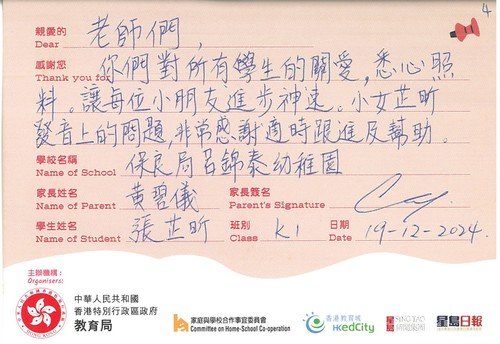 4
親愛的 老師們，
Dear
感謝您 你們對所有學生的關愛，悉心照
Thank you for
料。讓每位小朋友進步神速。小女芷昕
發音上的問題，非常感謝適時跟進及幫助。
學校名稱 保良局呂錦泰幼稚園
Name of School
家長姓名 黃碧儀 家長簽名
Name of Parent Parent's Signature
學生姓名 張芷昕 班別 K1 日期 19-12-2024.
Name of Student Class Date
主辦機構：
Organisers:
中華人民共和國
香港特別行政區政府
教育局
家庭與學校合作事宜委員會
Committee on Home-School Co-operation
香港教育城
HKedCity
星島 SING TAO
新聞集團
星島日報